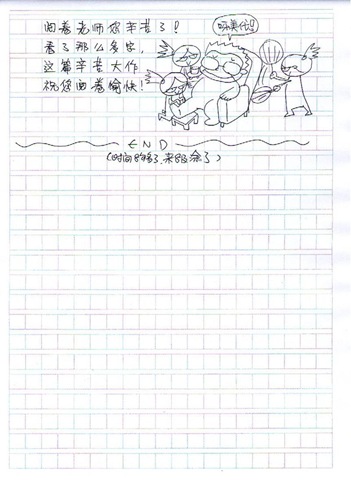 阅卷老师您辛苦了!
看了那么多字,
这篇辛苦大作
祝您阅卷愉快!
END
(时间 够了,来 涂了)